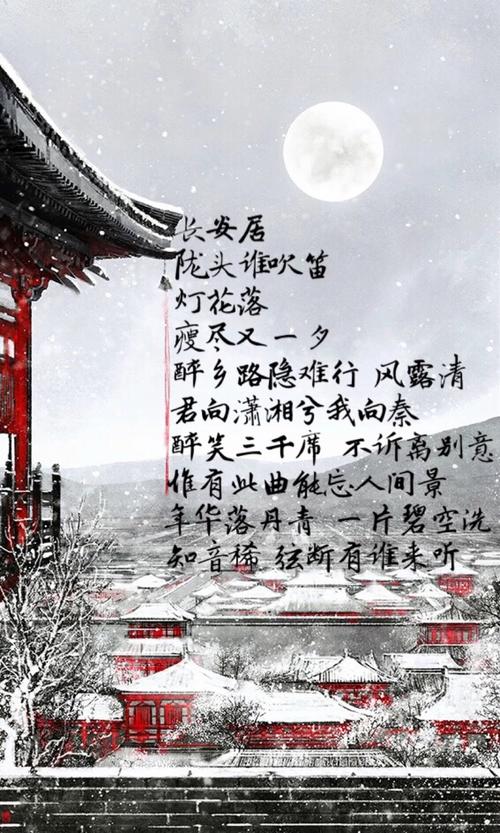 长安居
陇头谁吹笛
灯花落
瘦尽又一夕
醉乡路隐难行 风露清
君向潇湘兮我向秦
醉笑三千席 不诉离别意
惟有此曲能忘人间景
年华落丹青 一片碧空洗
知音稀 弦断有谁来听